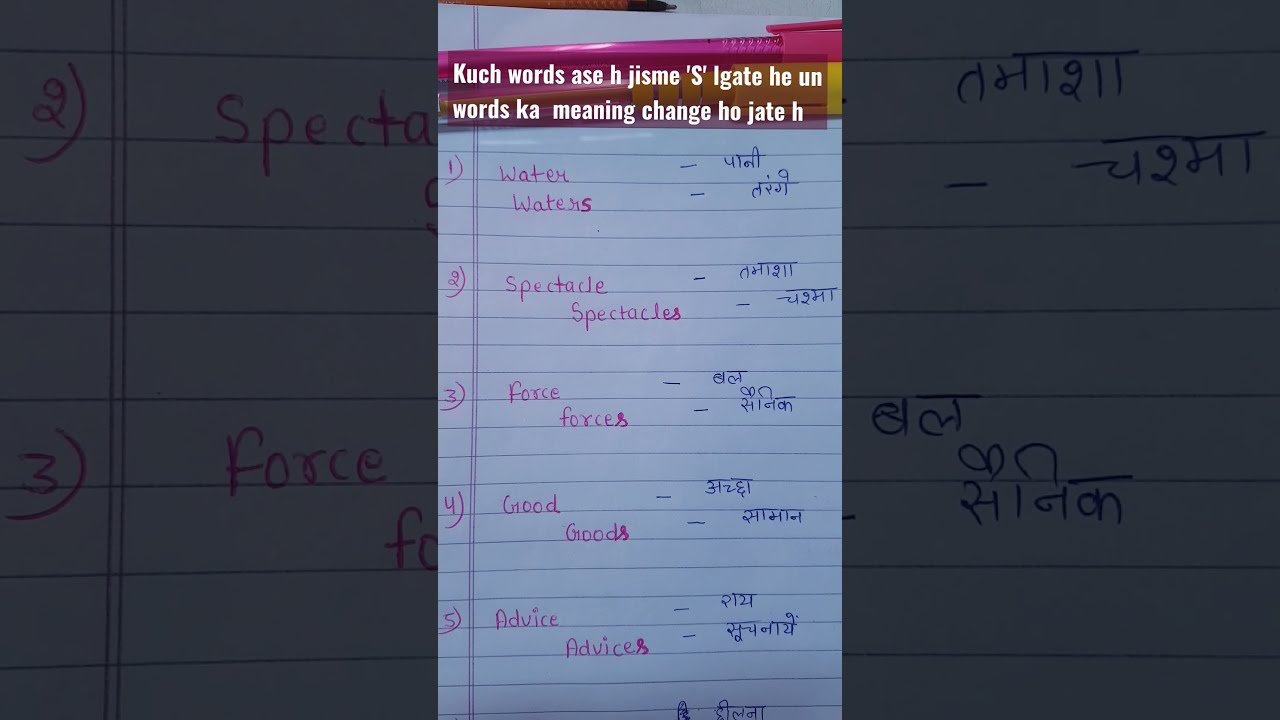 Kuch words ase h jisme 'S' lgate he un
words ka meaning change ho jate h
1) Water - पानी
Waters - तरंगे
२) Spectacle - तमाशा
Spectacles - चश्मा
3) Force - बल
forces - सैनिक
4) Good - अच्छा
Goods - सामान
5) Advice - राय
Advices - सूचनायें